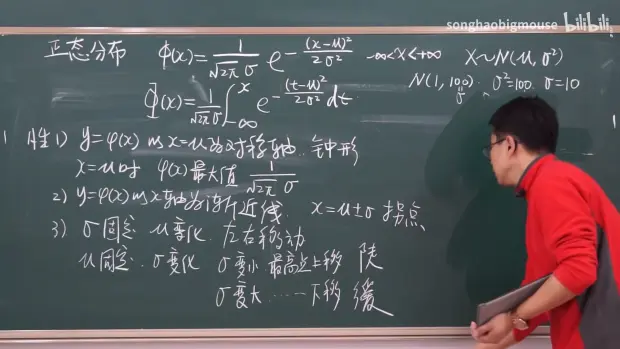 songhaobigmouse bilibili
正态分布 φ(x)=1/(√2π σ) e^{-(x-μ)²/2σ²} -∞<x<+∞ X~N(μ,σ²)
N(1,100) σ²=100. σ=10
Φ(x)=1/(√2π σ)∫_{-∞}^{x} e^{-(t-μ)²/2σ²}dt
性 1) y=φ(x) 以x=μ为对称轴.. 钟形
x=μ时 φ(x)最大值 1/(√2π σ)
2) y=φ(x)以x轴为渐近线. x=μ±σ 拐点
3) σ固定 μ变化. 左右移动
μ固定. σ变化 σ变小 最高点上移 陡
σ变大 ……下移 缓